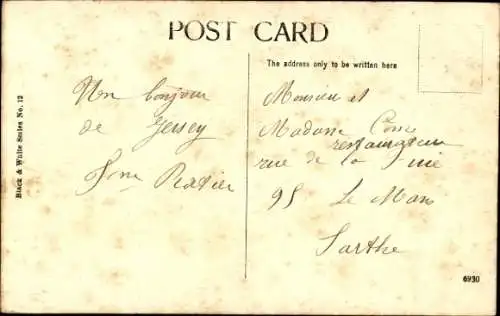 POST CARD
The address only to be written here
Black & White Series No. 12
Un bonjour
de Jersey
Ratier
Monsieur et
Madame
restaurateur
rue de la
95 Le Mans
Sarthe
6930